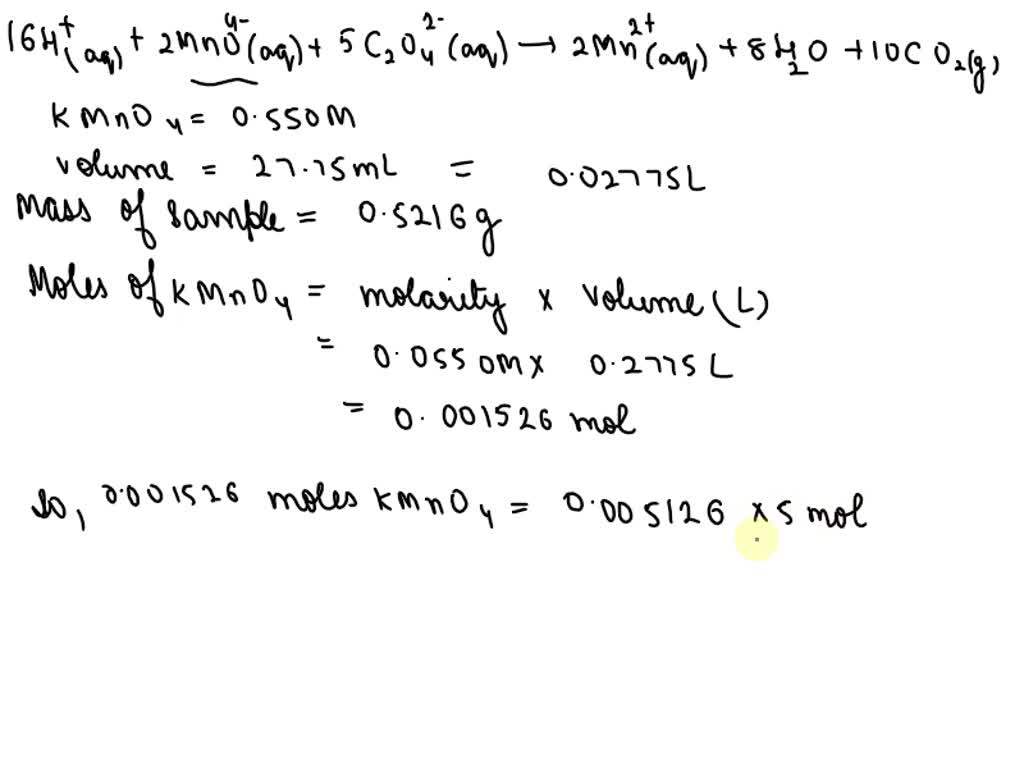 16H⁺(aq) + 2MnO⁴⁻(aq) + 5C₂O₄²⁻(aq) → 2Mn²⁺(aq) + 8H₂O + 10CO₂(g)
KMnO₄ = 0.550M
volume = 27.75mL = 0.02775L
Mass of sample = 0.5216g
Moles of KMnO₄ = molarity × volume(L)
= 0.0550M × 0.2775L
= 0.001526 mol
So, 0.001526 moles KMnO₄ = 0.005126 × 5 mol